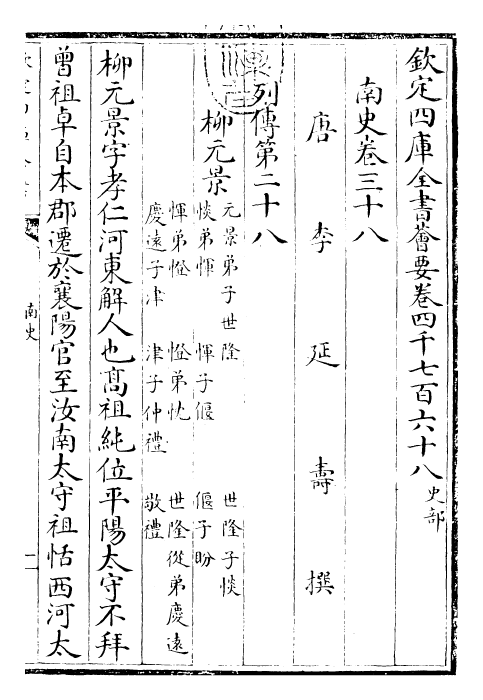 欽定四庫全書薈要卷四千七百六十八 史部
南史卷三十八
唐 李 延 壽 撰
列傳第二十八
柳元景 元景弟子世隆 世隆子惔
惔弟惲 惲子偃 偃子盼
惲弟憕 憕弟忱 世隆從弟慶遠
慶遠子津 津子仲禮 敬禮
柳元景字孝仁河東解人也髙祖純位平陽太守不拜
曾祖卓自本郡遷於襄陽官至汝南太守祖恬西河太
南史
一